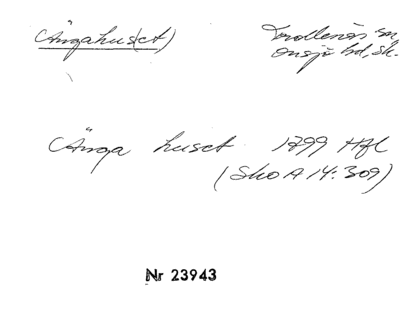 (Ängahuset)
Trollenäs sn,
Onsjö hd, Sk.
Änga huset 1799 Hfl
(Sko A 14:309)
Nr 23943